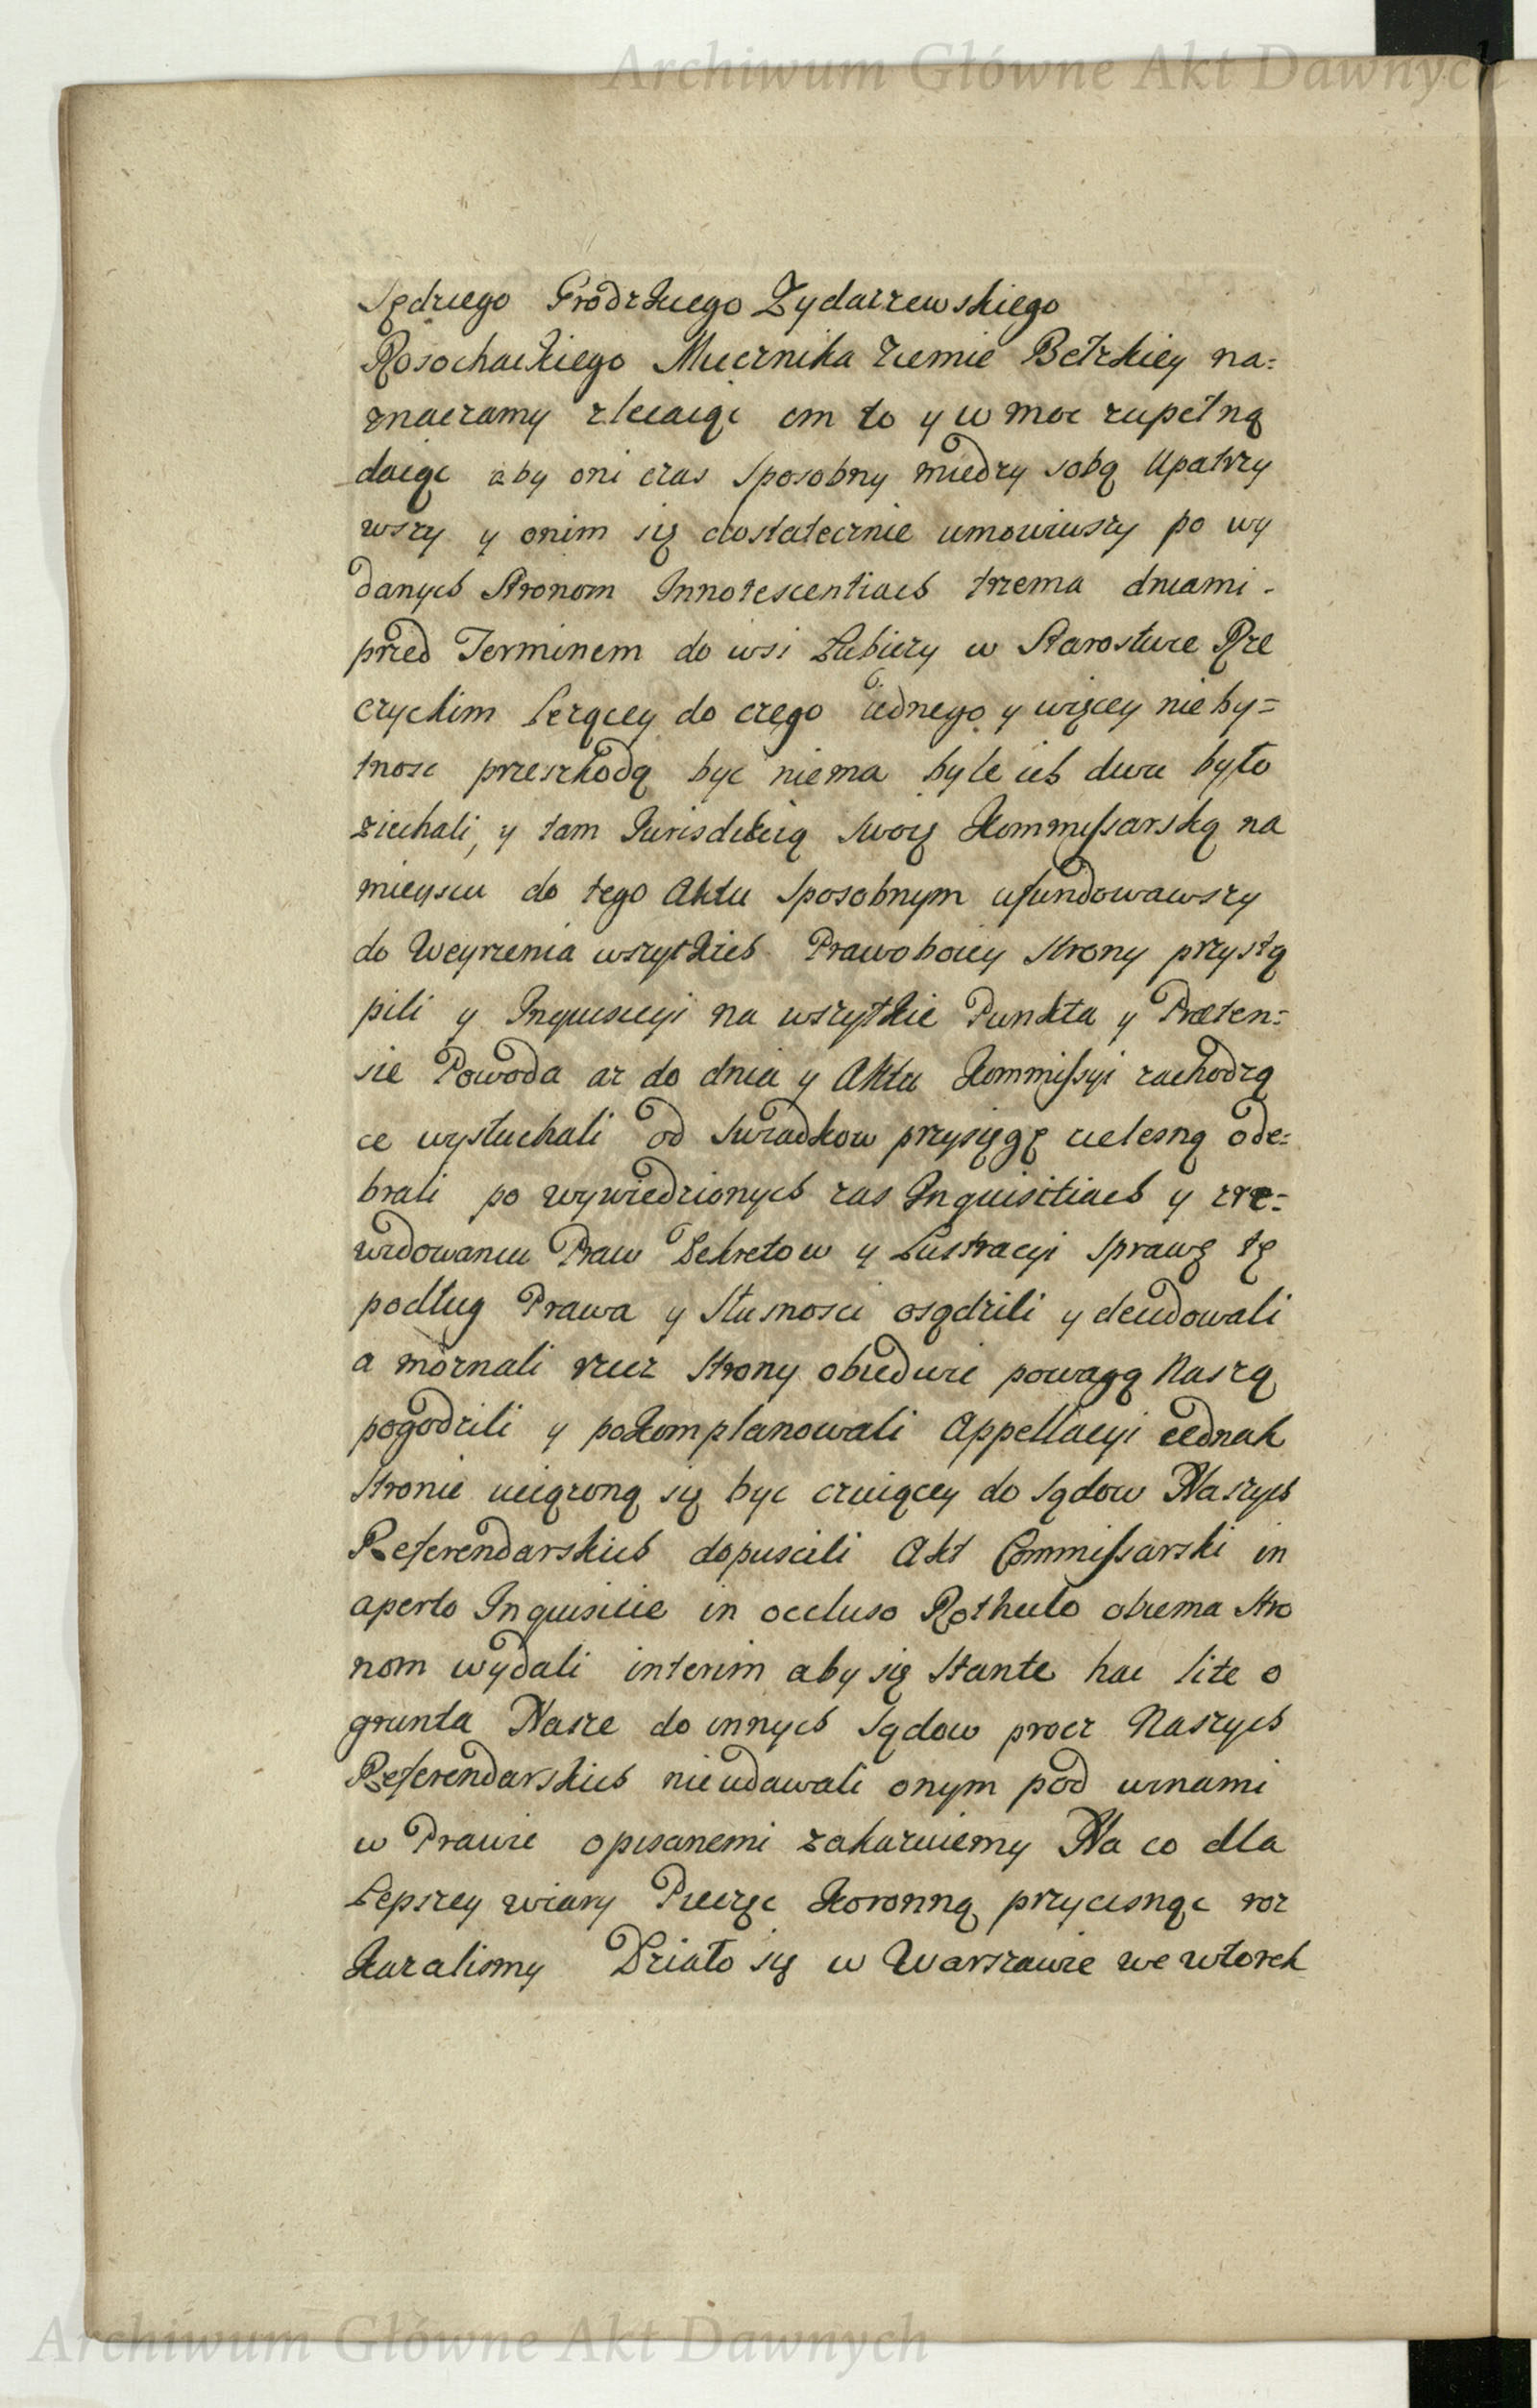 Archiwum Główne Akt Dawnych
Sędziego Grodzkiego Zydaczewskiego
Rosochackiego Miecznika Ziemie Bełzkiey na=
znaczamy zlecaiąc im to y w moc zupełną
daiąc aby oni czas sposobny miedzy sobą upatrzy
wszy y onim się dostatecznie umowiwszy po wy
danych Stronom Innotescentiach trzema dniami
przed Terminem do wsi Łubiczy w Starostwie Rze
czyckim Lezącey do czego iednego y więcey nie by=
tnosc przeszkodą byc niema byle ich dwu było
ziechali, y tam Jurisdikcią swoię Kommissarską na
mieyscu do tego Aktu sposobnym ufundowawszy
do Weyrzenia wszytkich Praw oboiey Strony przystą
pili y Inquisicyi na wszytkie Punkta y Præten=
sie Powoda az do dnia y Aktu Kommissyi zachodzą
ce wysłuchali od Swiadkow przysięgę cielesną ode=
brali po wywiedzionych zas Inquisitiach y zre=
widowaniu Praw Dekretow y Lustracyi Sprawę tę
podług Prawa y Słusnosci osądzili y decidowali
a moznali rzecz Strony obiedwie powagą Naszą
pogodzili y pokomplanowali Appellacyi iednak
Stronie uciązoną się byc czuiącey do Sądow Naszych
Referendarskich dopuscili Akt Commissarski in
aperto Inquisicie in occluso Rothulo obiema Stro
nom wydali interim aby się stante hac lite o
grunta Nasze do innych Sądow procz Naszych
Referendarskich nieudawali onym pod winami
w Prawie opisanemi zakazuiemy Na co dla
Lepszey wiary Pieczęc Koronną przycisnąc roz
kazalismy Działo się w Warszawie we wtorek
Archiwum Główne Akt Dawnych